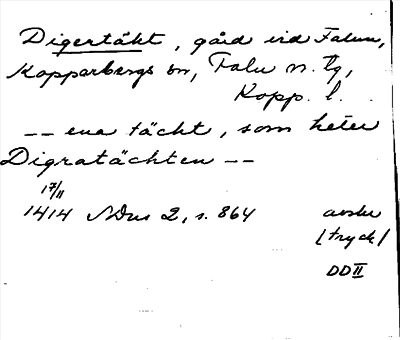 Digertäkt, gård vid Falun,
Kopparbergs sn, Falu n. tg,
Kopp. l.
-- ena täckt, som heter
Digratächten --
17/11
1414 SDns 2, s. 864 avskr
(tryck)
DD II